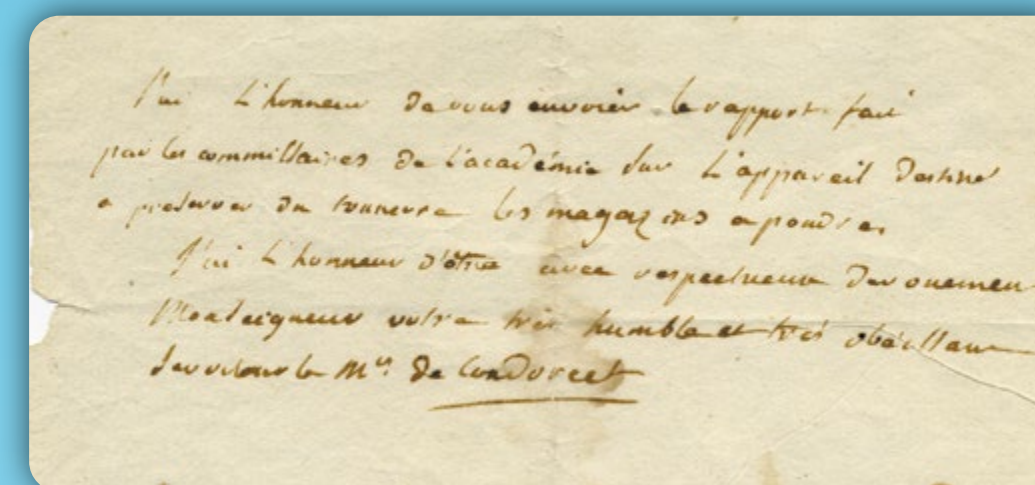 J'ai L'honneur de vous envoier le rapport fait
par les commissaires de l'académie sur L'appareil destiné
a preserver du tonnerre les magazins a poudre.
J'ai L'honneur d'être avec respectueux devouement
Monseigneur votre très humble et très obéissant
serviteur le Mis de Condorcet